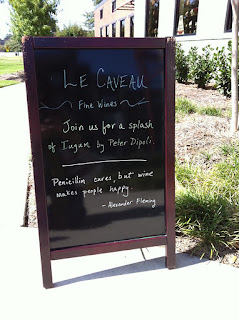 Le Caveau
Fine Wines
Join us for a splash
of Iugum by Peter Dipoli.
Penicillin cures, but wine
makes people happy.
- Alexander Fleming